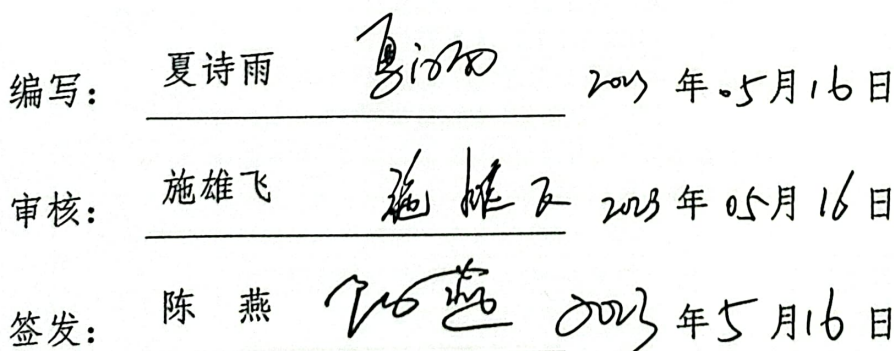 编写： 夏诗雨 夏诗雨 2023 年 05 月 16 日
审核： 施雄飞 施雄飞 2023 年 05 月 16 日
签发： 陈 燕 陈燕 2023 年 5 月 16 日